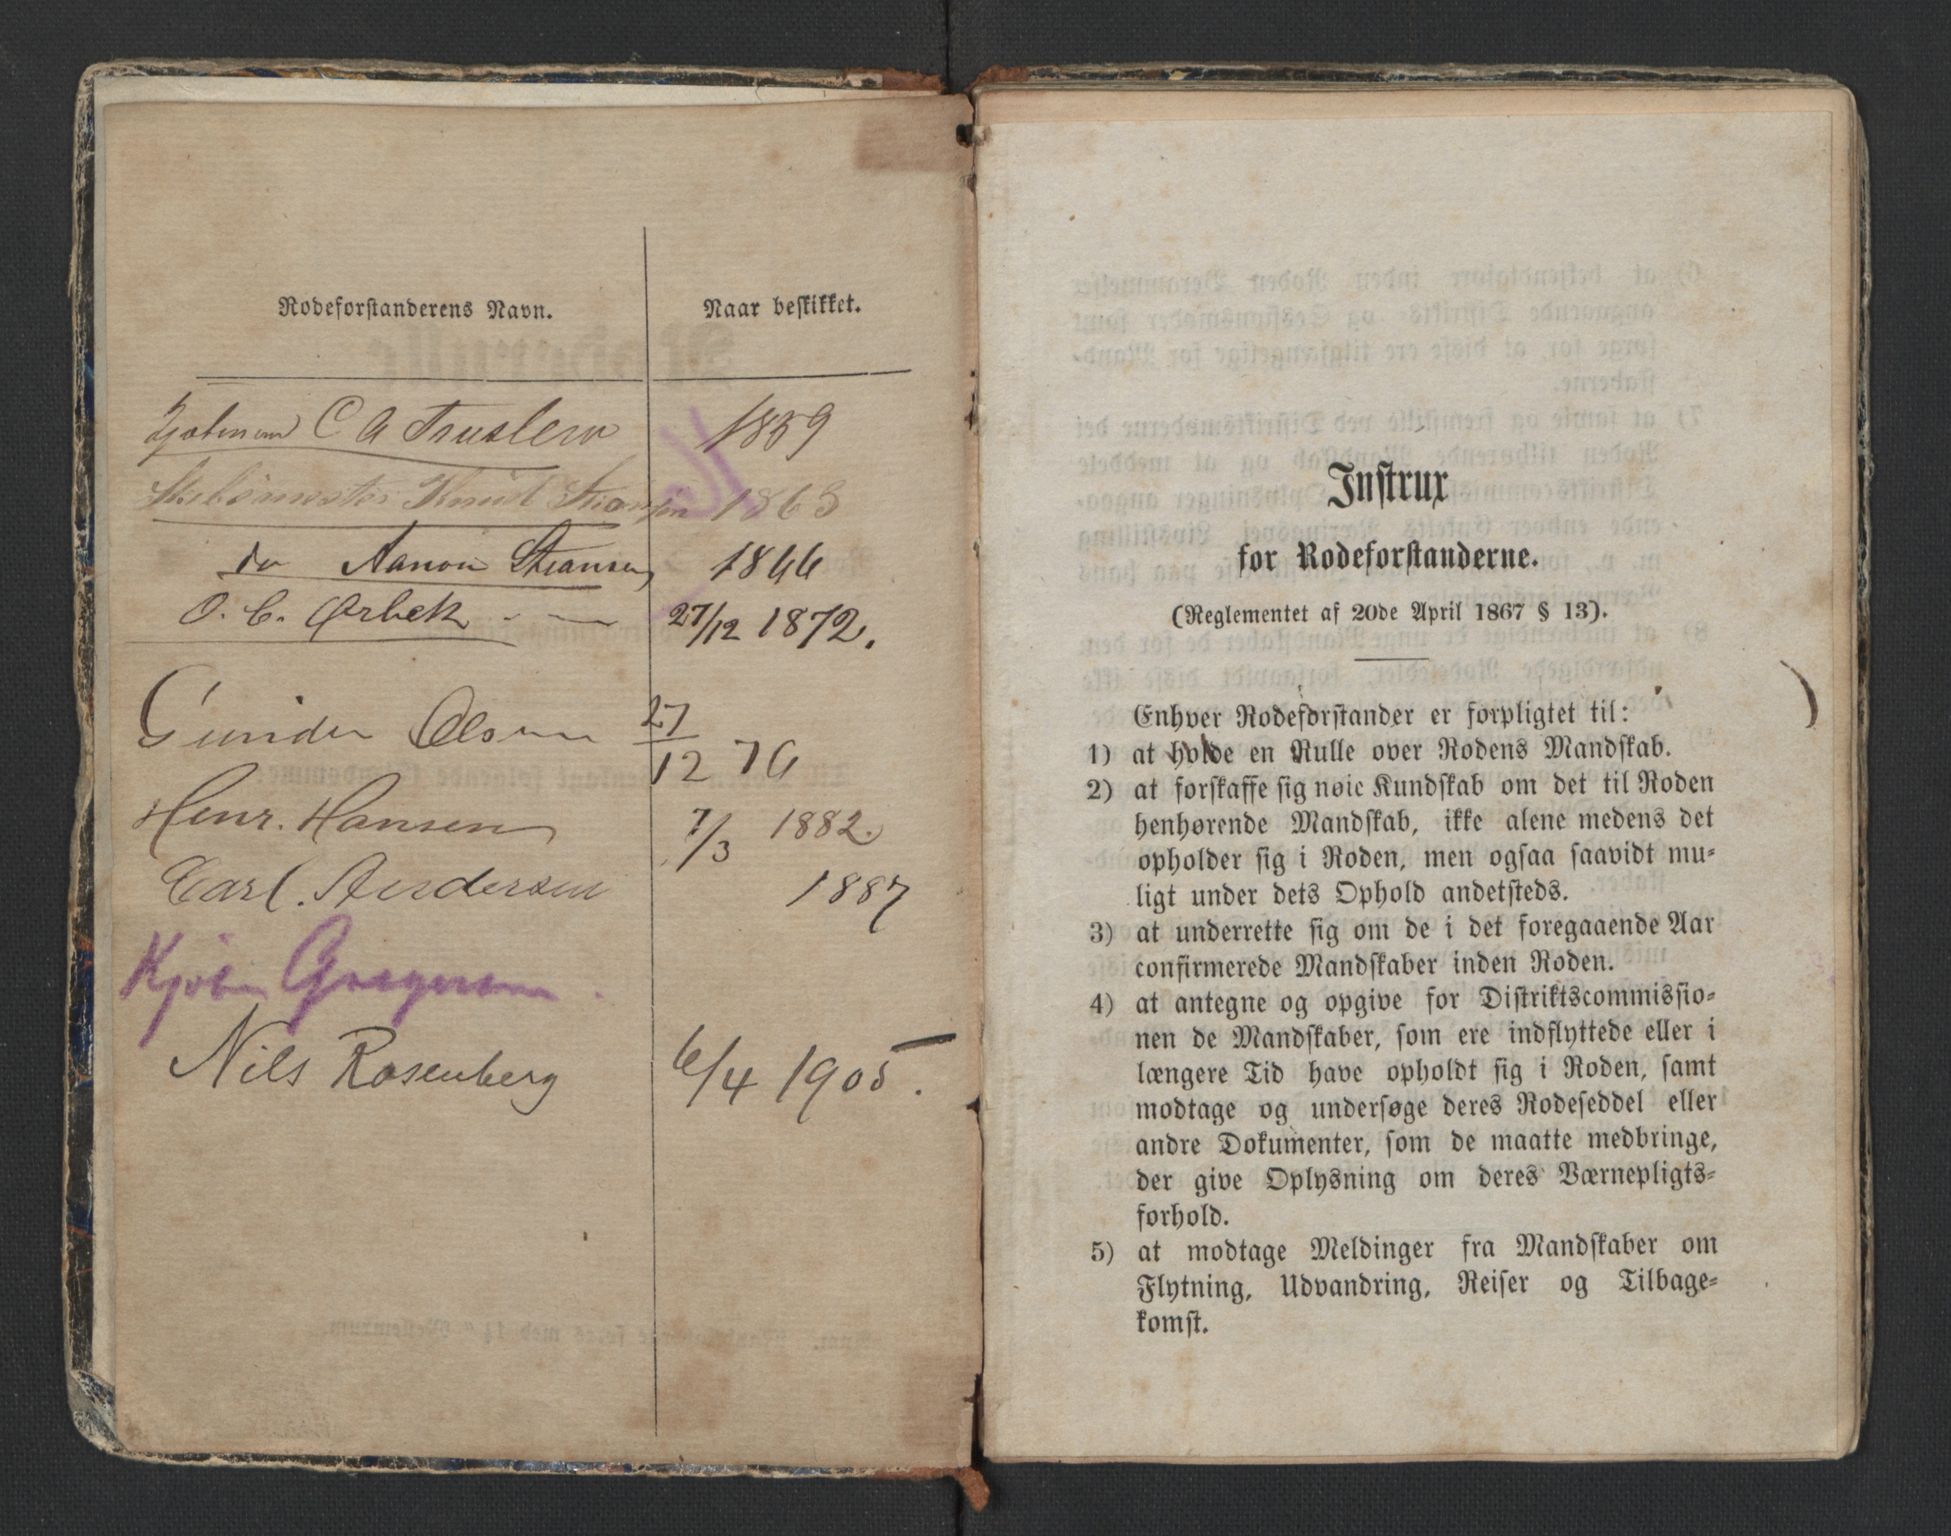 Rodeforstanderens Navn.
Naar beskikket.
C A Truslew 1859
Knud 1863
do Aanon Stiansen 1866
O. C. Ørbek 27/12 1872.
Gunder Olsen 27/12 76
Henr. Hansen 7/3 1882.
Carl. Andersen 1887
Kjøbm Gregersen
Nils Rosenberg 6/4 1905.
Instrux
for Rodeforstanderne.
(Reglementet af 20de April 1867 § 13).
Enhver Rodeforstander er forpligtet til:
1) at holde en Rulle over Rodens Mandskab.
2) at forskaffe sig nøie Kundskab om det til Roden
henhørende Mandskab, ikke alene medens det
opholder sig i Roden, men ogsaa saavidt mu-
ligt under dets Ophold andetsteds.
3) at underrette sig om de i det foregaaende Aar
confirmerede Mandskaber inden Roden.
4) at antegne og opgive for Distriktscommissio-
nen de Mandskaber, som ere indflyttede eller i
længere Tid have opholdt sig i Roden, samt
modtage og undersøge deres Rodeseddel eller
andre Dokumenter, som de maatte medbringe,
der give Oplysning om deres Værnepligts-
forhold.
5) at modtage Meldinger fra Mandskaber om
Flytning, Udvandring, Reiser og Tilbage-
komst.